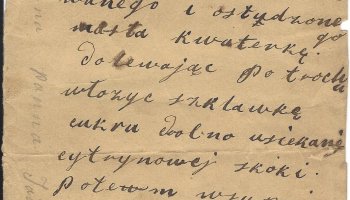 wanego i ostydzonego
masła kwaterkę.
dolewając potrochu
włożyc szklawkę
cukru dolno usiekanej
cytrynowej skóki.
Potewm wsypi
na panna